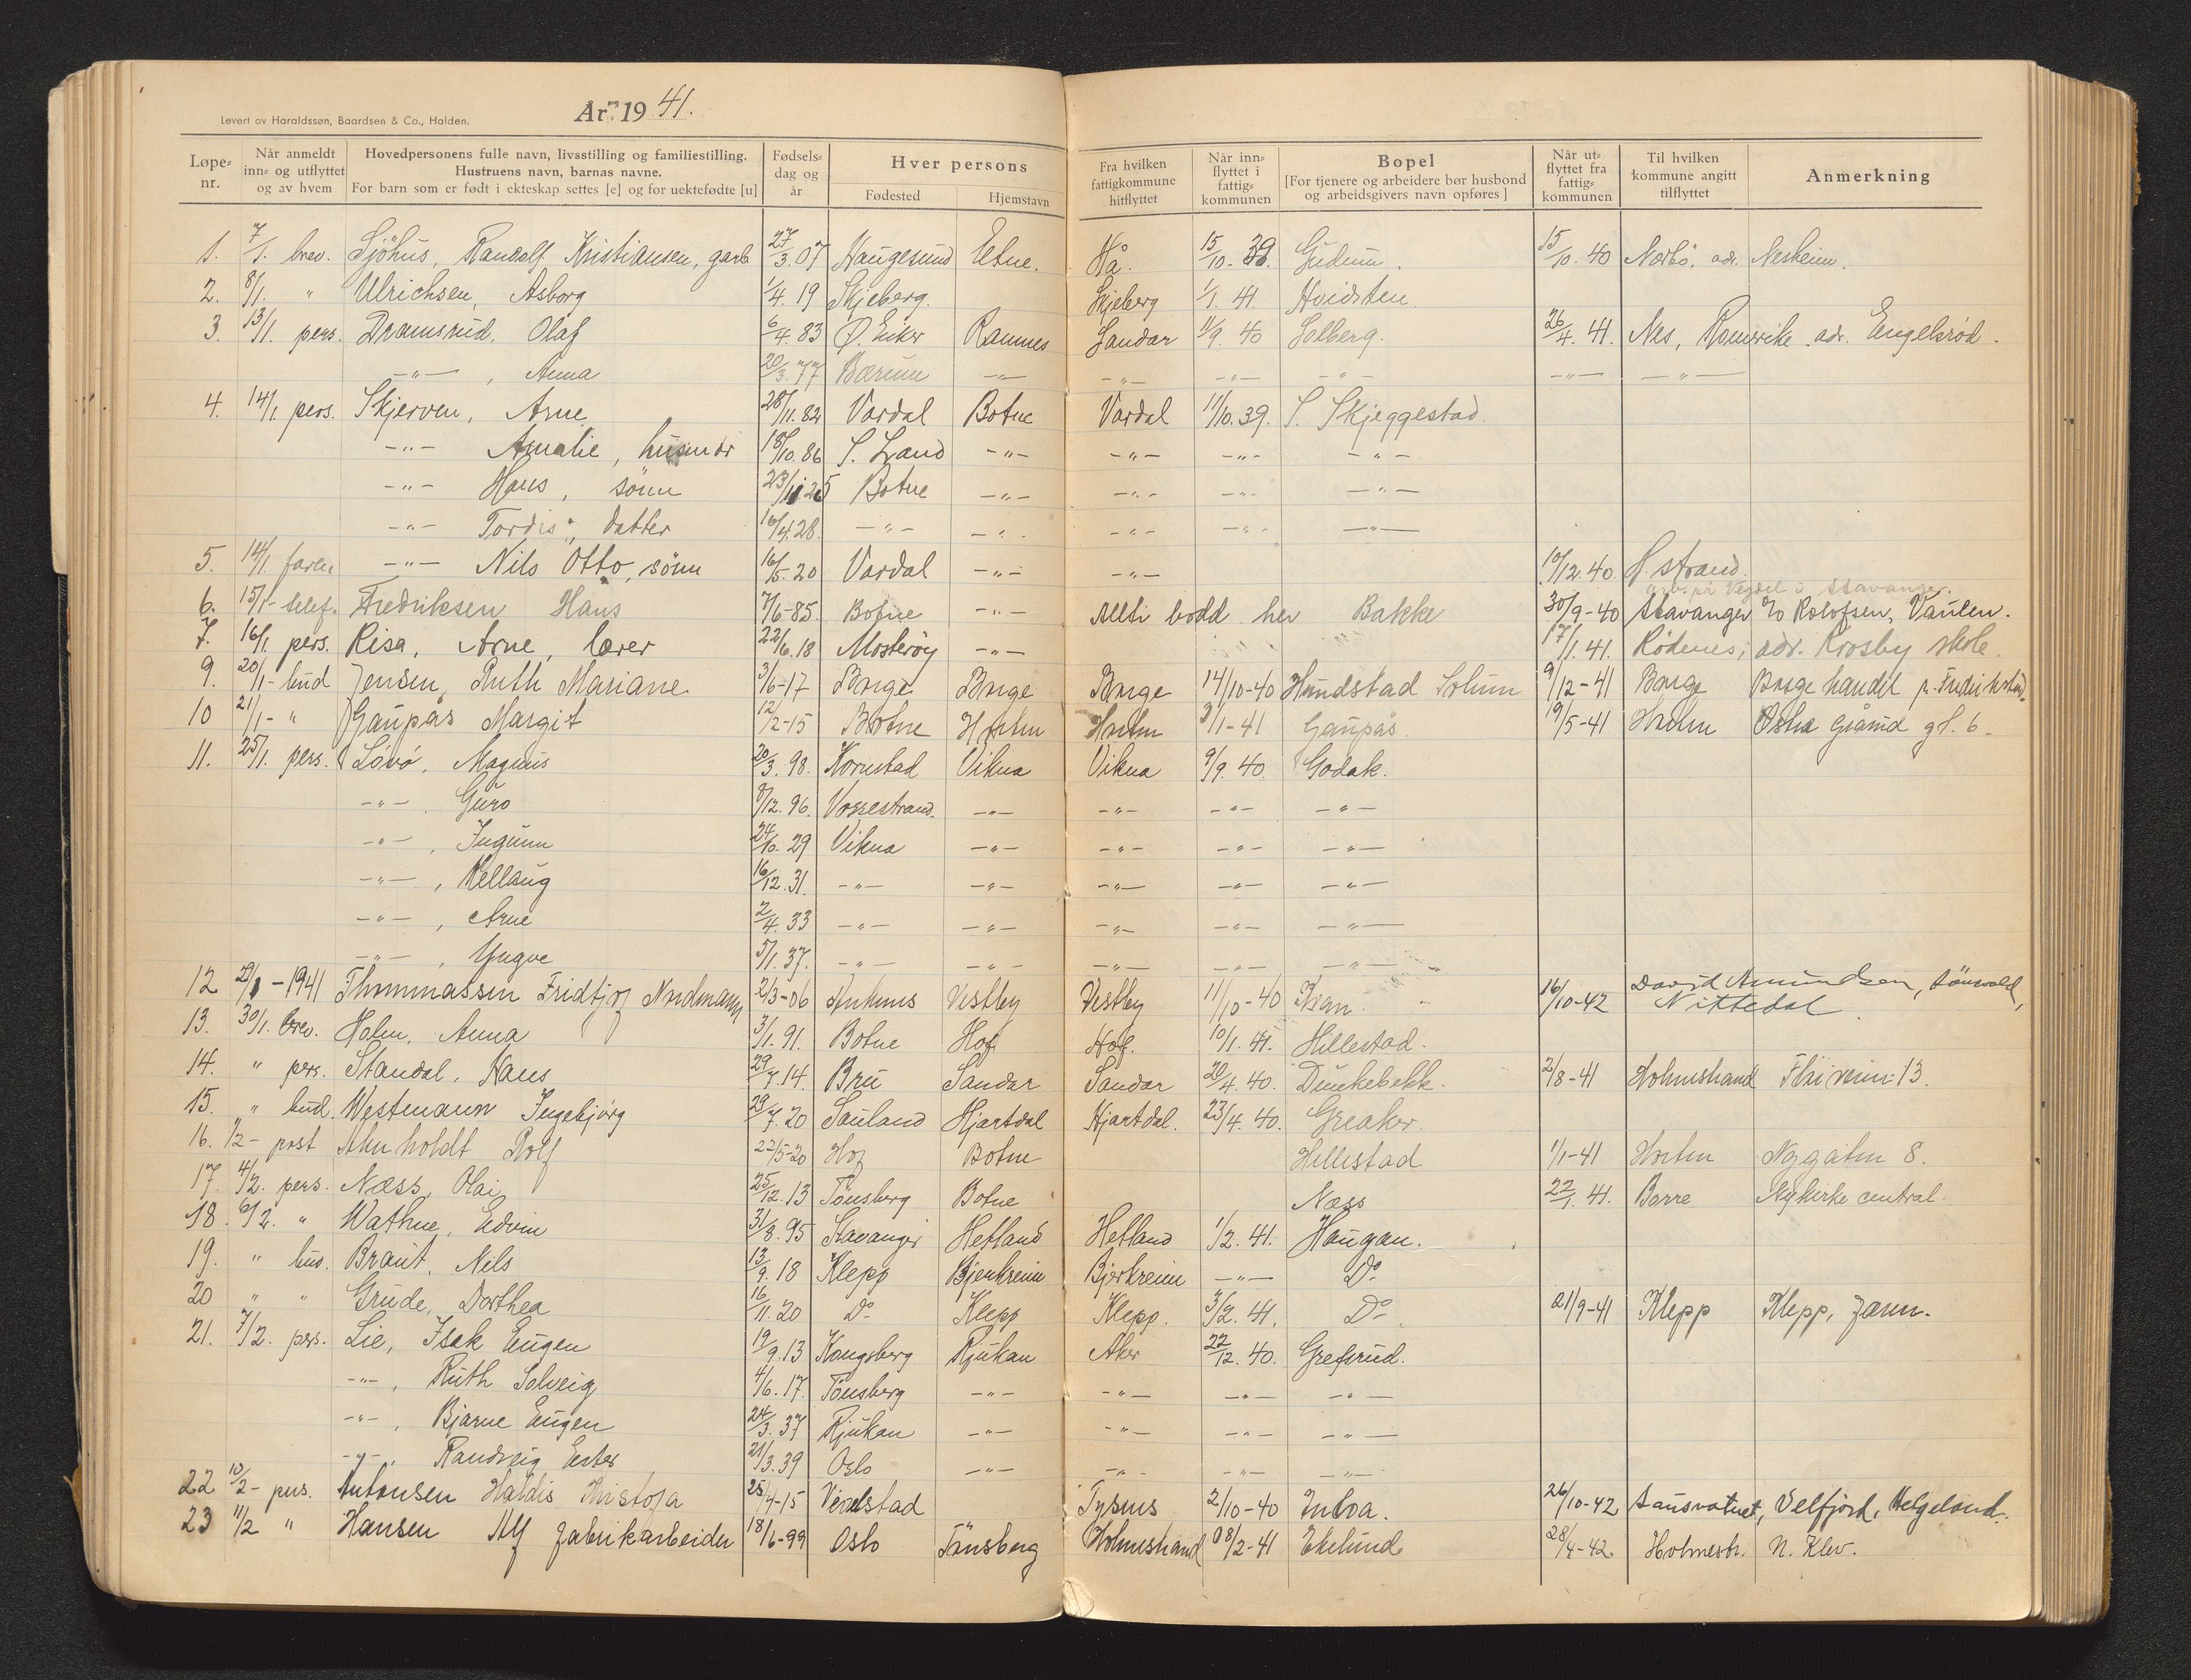 År 1941.
Levert av Haraldssøn, Baardsen & Co., Halden.
Løpe-nr. Når anmeldt inn- og utflyttet og av hvem Hovedpersonens fulle navn, livsstilling og familiestilling. Hustruens navn, barnas navne. For barn som er født i ekteskap settes [e] og for uektefødte [u] Fødsels-dag og år Hver persons Fødested Hjemstavn Fra hvilken fattigkommune hitflyttet Når inn-flyttet i fattig-kommunen Bopel [For tjenere og arbeidere bør husbond og arbeidsgivers navn opføres] Når ut-flyttet fra fattig-kommunen Til hvilken kommune angitt tilflyttet Anmerkning
1. 7/1. brev. Sjöhus, Randolf Kristiansen, garb 27/3.07 Haugesund Etne. Hå. 15/10.39. Gudum. 15/10.40 Nærbö, adr. Neskeim.
2. 8/1. " Ulrichsen, Asborg 1/4.19 Skjeberg. Skjeberg 1/1.41 Hvidsten.
3. 13/1. pers. Dramsrud, Olaf 6/4.83 Ø. Eiker Ramnes Sandar 11/9.40 Solberg. 26/4.41. Nes, Romerike adr. Engelsrød.
-"- , Anna 20/3.77 Bærum -"- -"- -"- -"- -"- -"-
4. 14/1 pers. Skjerven, Arne 28/11.82 Vardal Botne Vardal 11/10.39. S. Skjeggestad
-"- Amalie, husmor 18/10.86 S. Land -"- -"- -"- -"-
-"- Hans, sönn 23/11 25 Botne -"- -"- -"- -"-
-"- Tordis, datter 16/4.28. -"- -"- -"- -"- -"-
5. 14/1. faren -"- Nils Otto, sönn 16/5.20 Vardal -"- -"- 10/12.40. H.strand.
arb. på Vegdel i Stavanger.
6. 15/1- telef. Fredriksen Hans 7/6-85. Botne -"- Alltid bodd her Bakke 30/9-40 Stavanger c/o Rolofsen, Vaulen.
7. 16/1. pers. Risa, Arne, lærer 22/6.18 Mosterøy -"- 17/1.41. Rödenes, adr. Krosby skole.
9. 20/1- bud Jensen, Ruth Mariane 3/6-17 Borge Borge Borge 14/10-40 Hundstad Solum 9/12-41 Borge Borge handel p. Fredrikstad.
10 21/1- " Gaupås Margit 12/2-15 Botne Horten Horten 3/1-41 Gaupås 19/5-41 Horten Østre 6.
11. 25/1. pers. Lövö, Magnus 20/3.98. Kornstad Vikna Vikna 9/9.40. Godak.
-"- . Guro 8/12.96. Vossestrand. -"- -"- -"- -"-
-"- , Ingunn 24/10.29 Vikna -"- -"- -"- -"-
-"- , Hellaug 16/12.31. -"- -"- -"- -"- -"-
-"- , Arne 2/4.33 -"- -"- -"- -"- -"-
-"- , Yngve 5/1.37. -"- -"- -"- -"- -"-
12 -1941 Thommassen Fridtjof Nordmann 2/3-06 Vestby Vestby 11/10-40 16/10-42 David Amundsen, Nittedal.
13. 30/1. brev. Holm, Anna 3/1.91. Botne Hof Hof. 10/1.41. Hillestad.
14. " pers. Standal, Hans 29/7.14. Bru Sandar Sandar 20/4.40. Dunkebekk. 2/8-41 Holmestrand 13.
15. " bud. Westmann Ingebjörg 29/7.20 Sauland Hjartdal Hjartdal. 23/4.40. Greaker.
16. 1/2- post Rolf 22/5-20 Hof Botne Hillestad 1/1-41 Horten Nygaten 8.
17. 4/2. pers. Næss, Olai 25/12.13 Tönsberg Botne Næss 22/1.41. Borre Nykirke central.
18. 6/2. " Wathne, Edvin 31/8.95 Stavanger Hetland Hetland 1/2.41. Haugan.
19. " bud. Braut, Nils 13/9.18 Klepp Bjerkreim Bjerkreim -"- Do
20 " " Grude, Dorthea 16/11.20 Do Klepp Klepp. 3/2.41. Do 21/9-41 Klepp Klepp, Jæren.
21. 7/2. pers. Lie, Isak Eugen 19/9.13 Kongsberg Rjukan Aker 22/12.40. Grefsrud.
-"- , Ruth Solveig 4/6.17. Tönsberg -"- -"- -"- -"-
-"- , Bjarne Eugen 24/3.37 Rjukan -"- -"- -"- -"-
-"- , Randveig Ester 21/3.39 Oslo -"- -"- -"- -"-
22 10/2- pers. Antonsen Haldis Kristofa 25/4-15 Tysnes 2/10-40 26/10-42 Sausvatnet, Velfjord, Helgeland.
23 11/2 " Hansen Alf fabrikarbeider 18/6-99 Oslo Tönsberg Holmestrand 08/2-41 Ekelund 28/4-42. Holmestr. N. Klev.